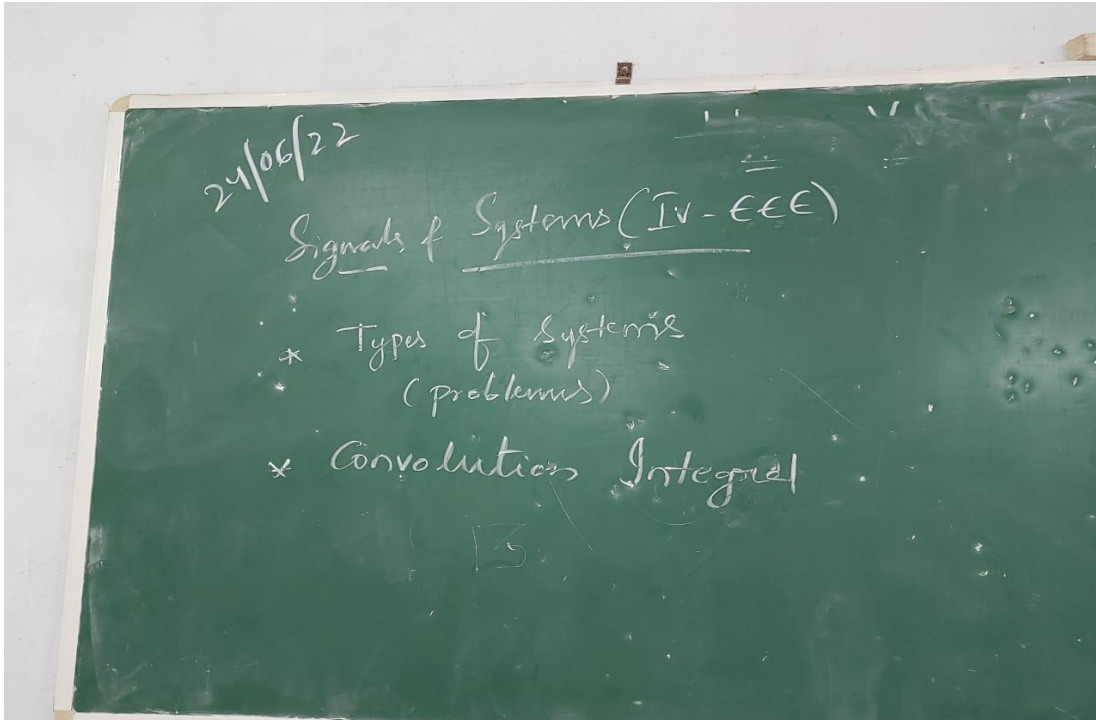 24/06/22
Signals & Systems (IV - EEE)
* Types of systems
(problems)
* Convolution Integral